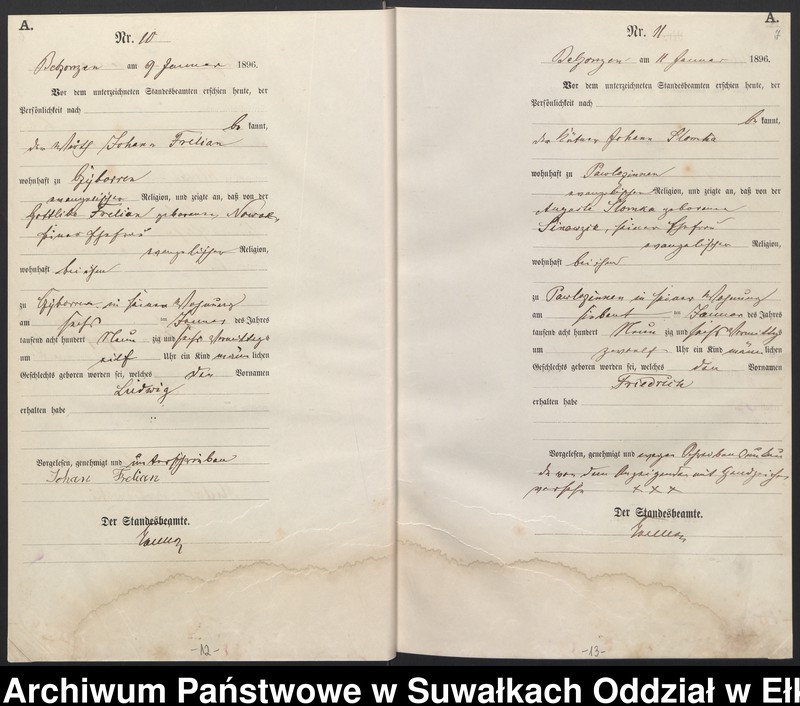 A.
Nr. 10
am 9 Januar 1896.
Vor dem unterzeichneten Standesbeamten erschien heute, der
Persönlichkeit nach
be kannt,
der Wirth Johann Frelian
wohnhaft zu Gyborren
evangelischer Religion, und zeigte an, daß von der
Gottliebe Frelian geborenen Nowak,
seiner Ehefrau
evangelischer Religion,
wohnhaft bei ihm
zu Gyborren in seiner Wohnung
am sechs ten Januar des Jahres
tausend acht hundert Neun zig und sechs Vormittags
um eilf Uhr ein Kind männlichen
Geschlechts geboren worden sei, welches den Vornamen
Ludwig
erhalten habe
Vorgelesen, genehmigt und unterschrieben
Johan Frelian
Der Standesbeamte.
-12-
A.
7
Nr. 11
am 11 Januar 1896.
Vor dem unterzeichneten Standesbeamten erschien heute, der
Persönlichkeit nach
be kannt,
der Käthner Johann Slomka
wohnhaft zu Pawlozinnen
evangelischer Religion, und zeigte an, daß von der
Auguste Slomka geborenen
seiner Ehefrau
evangelischer Religion,
wohnhaft bei ihm
zu Pawlozinnen in seiner Wohnung
am siebent ten Januar des Jahres
tausend acht hundert Neun zig und sechs Vormittags
um zwoelf Uhr ein Kind männlichen
Geschlechts geboren worden sei, welches den Vornamen
Friedrich
erhalten habe
Vorgelesen, genehmigt und wegen Schreibensunkun
de von dem Anzeigenden mit Handzeichen
versehen x x x
Der Standesbeamte.
-13-
Archiwum Państwowe w Suwałkach Oddział w Ełk